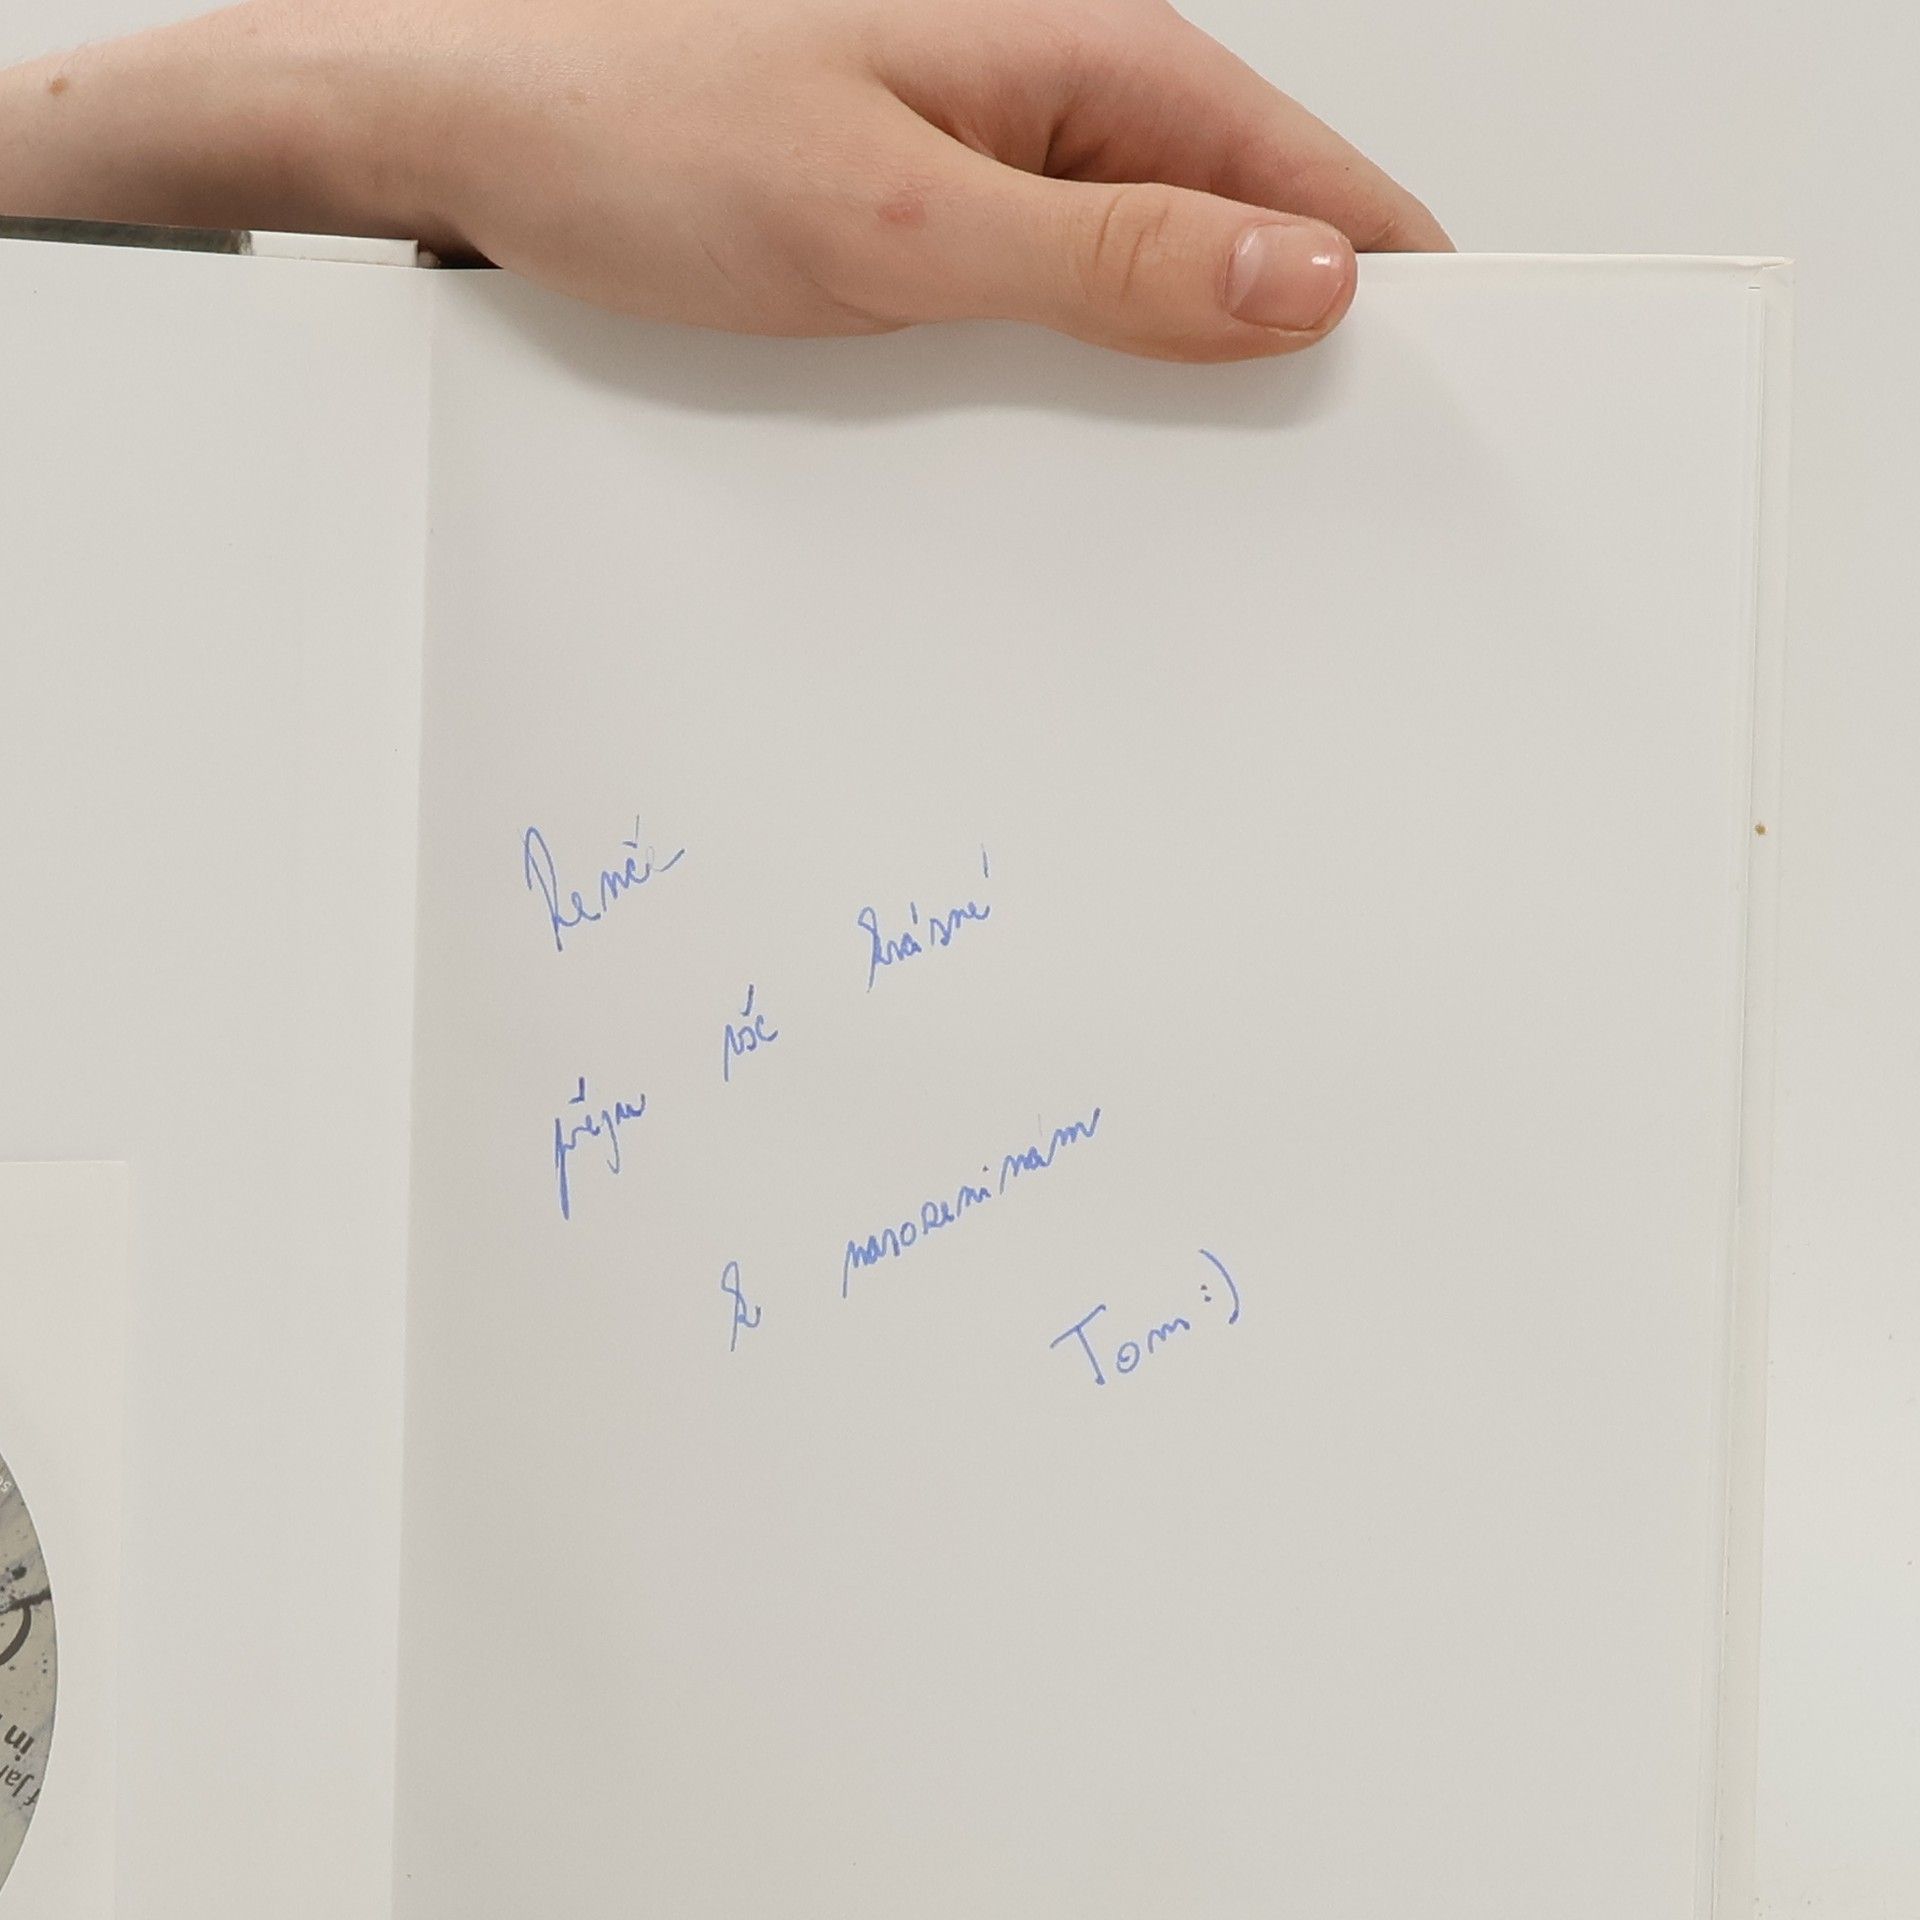 Renče
přeju vše krásné
k narozeninám
Tom :)
in